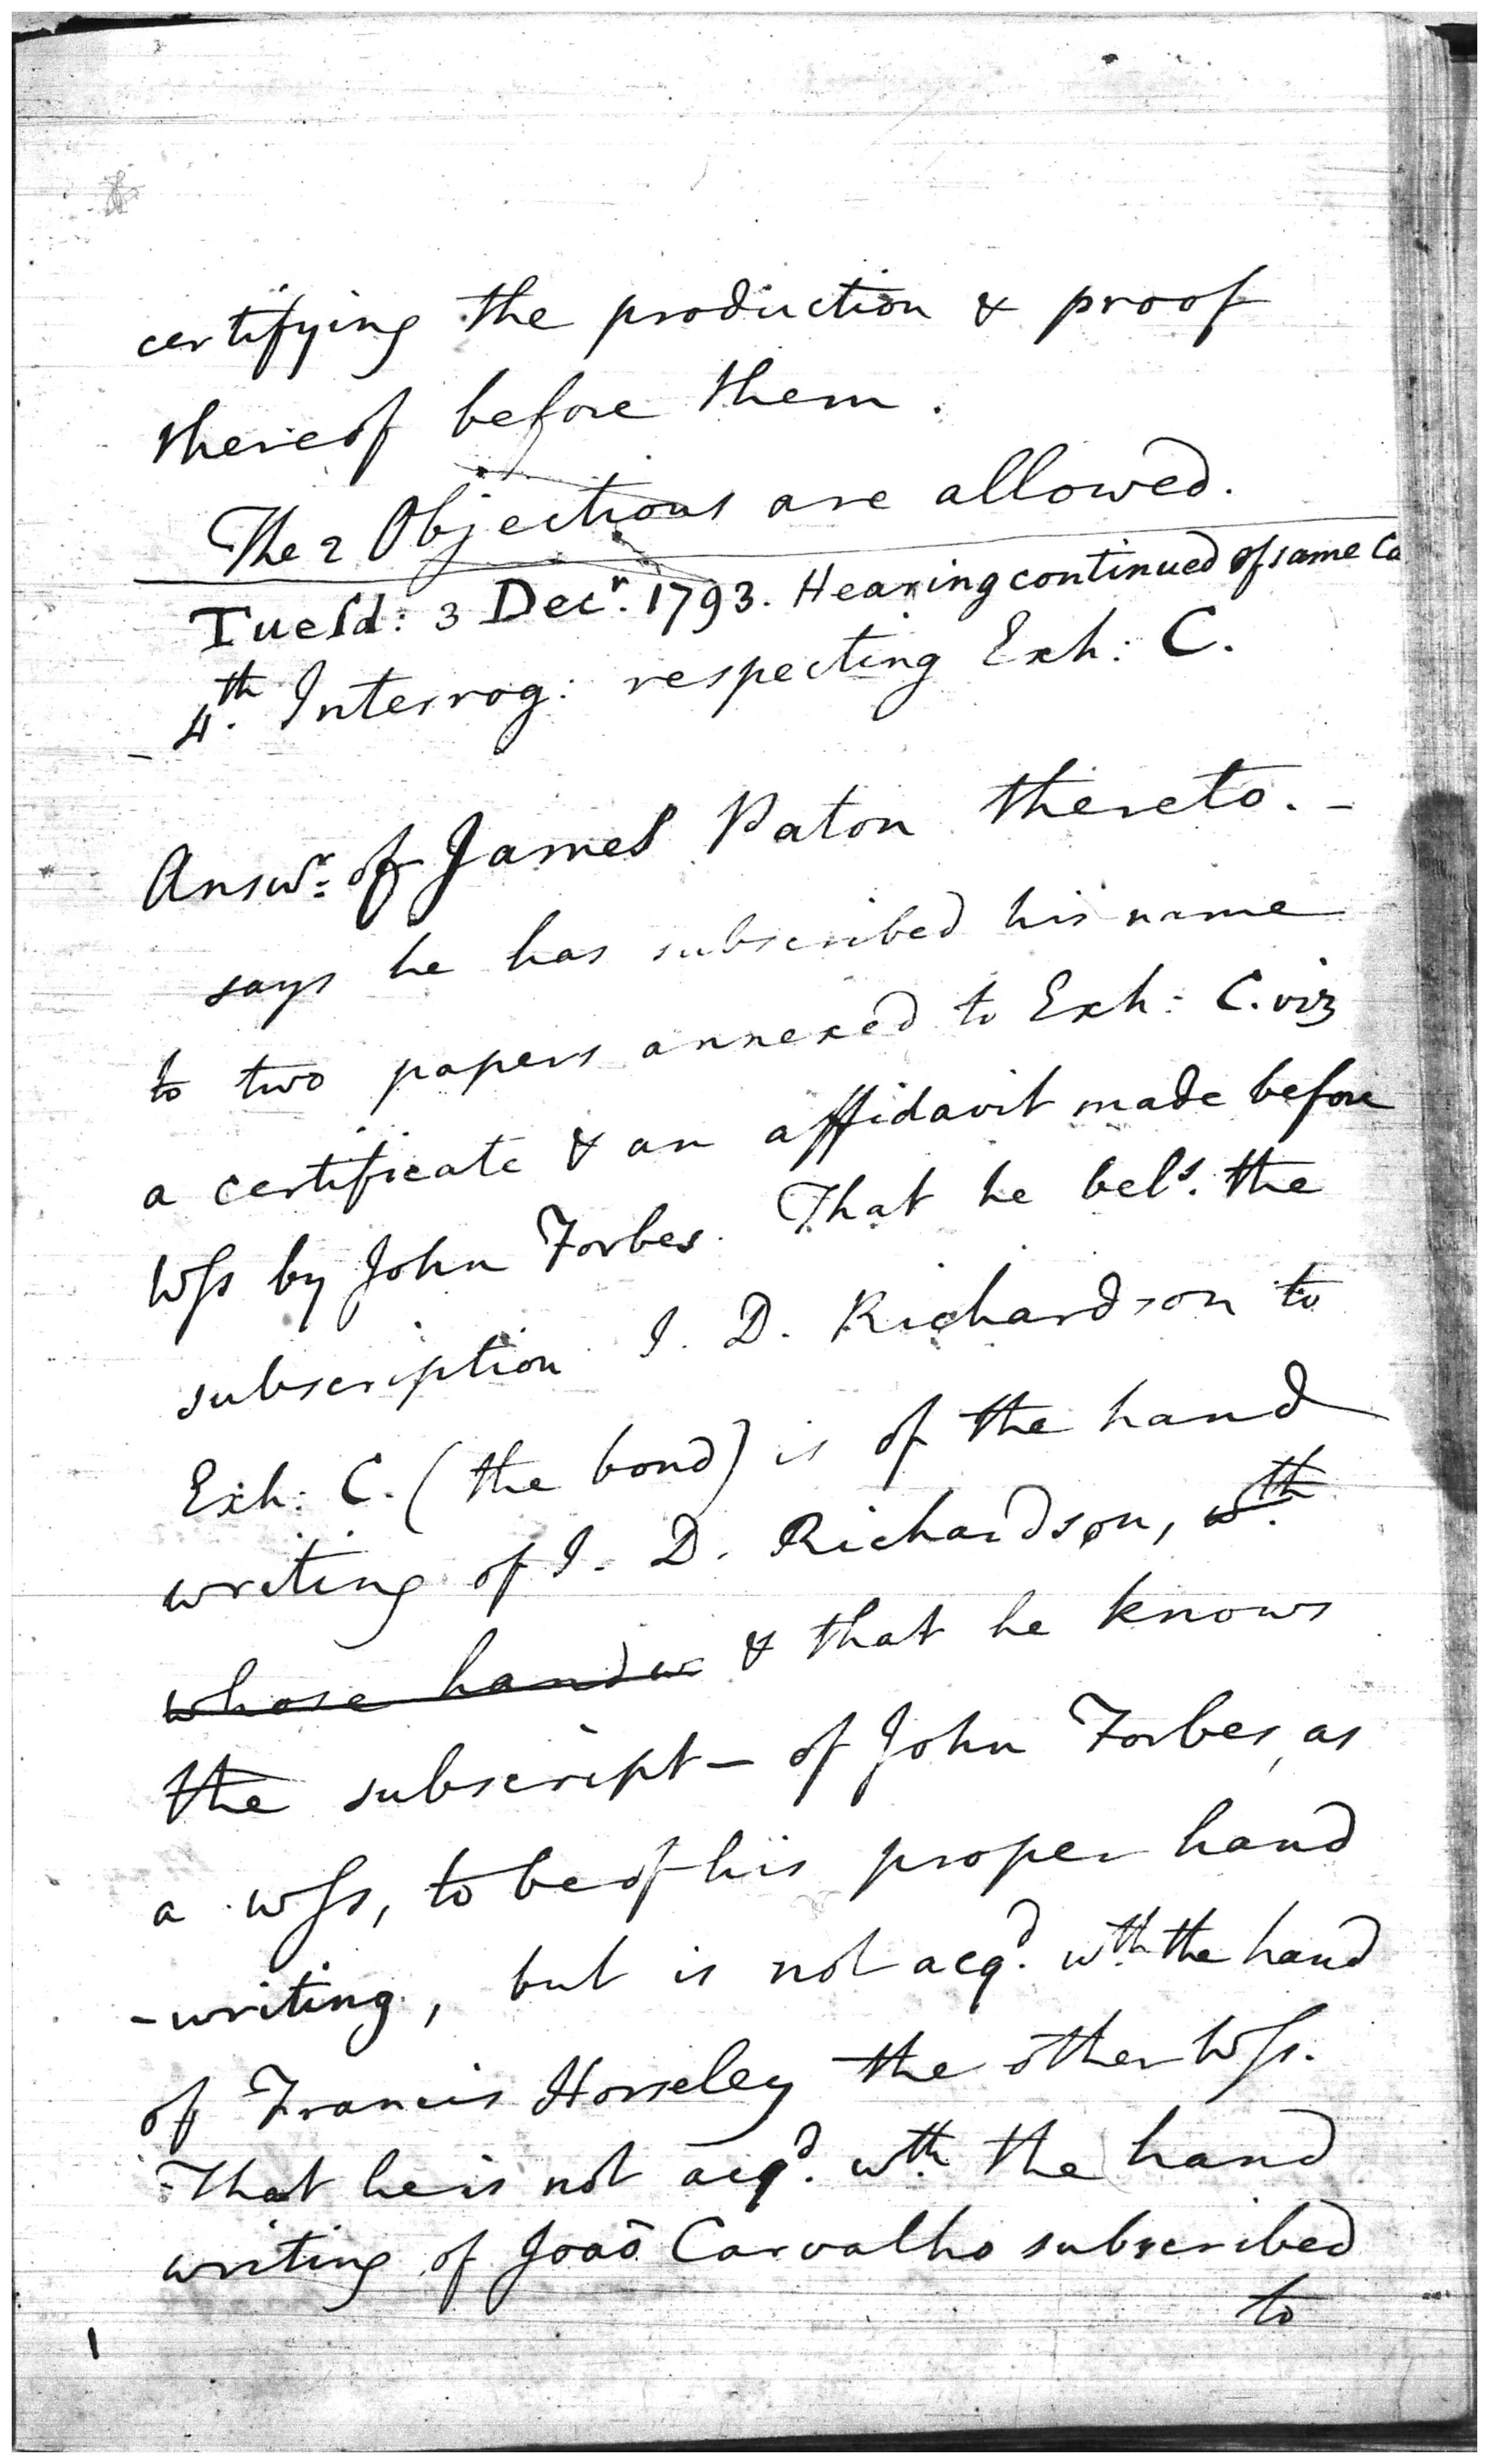 certifying the production & proof
thereof before them.
The 2 Objections are allowed.
Tuesd: 3 Decr. 1793. Hearing continued of same Ca
4th. Interrog: respecting Exh: C.
Answr: of James Paton thereto. -
says he has subscribed his name
to two papers annexed to Exh: C. viz
a certificate & an affidavit made before
Wss by John Forbes. That he bels. the
subscription I. D. Richardson to
Exh: C. (the bond) is of the hand
writing of I. D. Richardson, wth.
whose handw & that he knows
the subscript- of John Forbes, as
a wss, to be of his proper hand
-writing, but is not acqd. wth. the hand
of Francis Horseley the other Wss.
That he is not acqd. wth. the hand
writing of Joaõ Carvalho subscribed
to